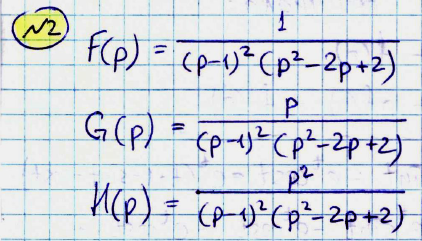 №2
F(p) = 1/((p-1)²(p²-2p+2))
G(p) = p/((p-1)²(p²-2p+2))
H(p) = p²/((p-1)²(p²-2p+2))